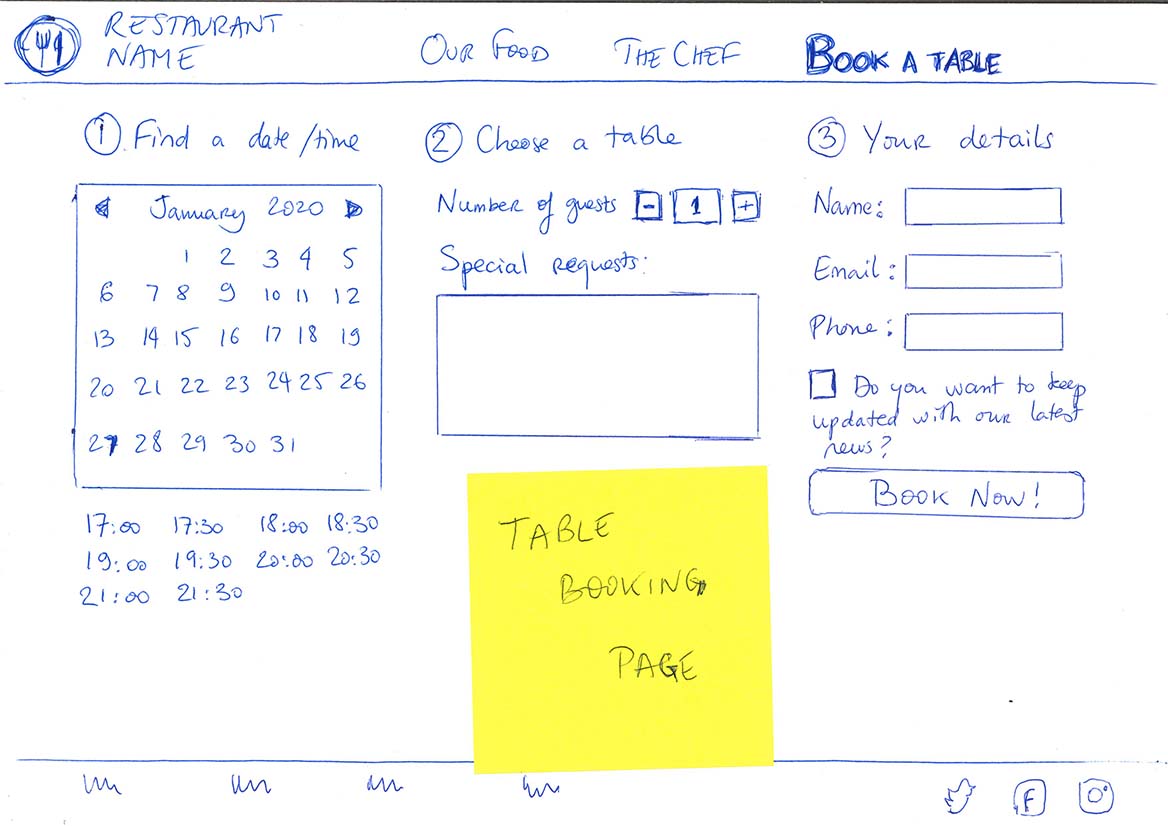 RESTAURANT
NAME
OUR FOOD
THE CHEF
BOOK A TABLE
1 Find a date/time
January 2020
1 2 3 4 5
6 7 8 9 10 11 12
13 14 15 16 17 18 19
20 21 22 23 24 25 26
27 28 29 30 31
17:00 17:30 18:00 18:30
19:00 19:30 20:00 20:30
21:00 21:30
2 Choose a table
Number of guests - 1 +
Special requests:
3 Your details
Name:
Email:
Phone:
Do you want to keep
updated with our latest
news?
BOOK NOW!
TABLE
BOOKING
PAGE